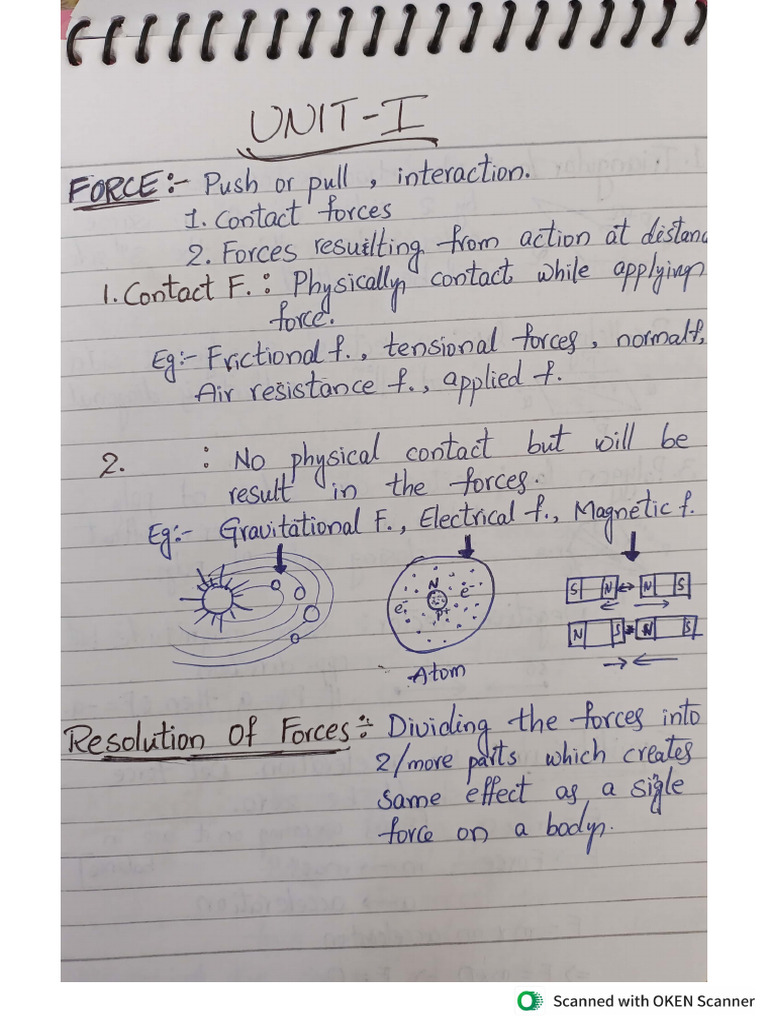 UNIT-I
FORCE:- Push or pull, interaction.
1. Contact forces
2. Forces resulting from action at distanc
1. Contact F. : Physically contact while applying
force.
Eg:- Frictional f., tensional forces, normal f,
Air resistance f., applied f.
2. : No physical contact but will be
result in the forces.
Eg:- Gravitational F., Electrical f., Magnetic f.
N e-
e- P+
S N N S
N S N S
Atom
Resolution Of Forces:- Dividing the forces into
2/more parts which creates
same effect as a sigle
force on a body.
Scanned with OKEN Scanner